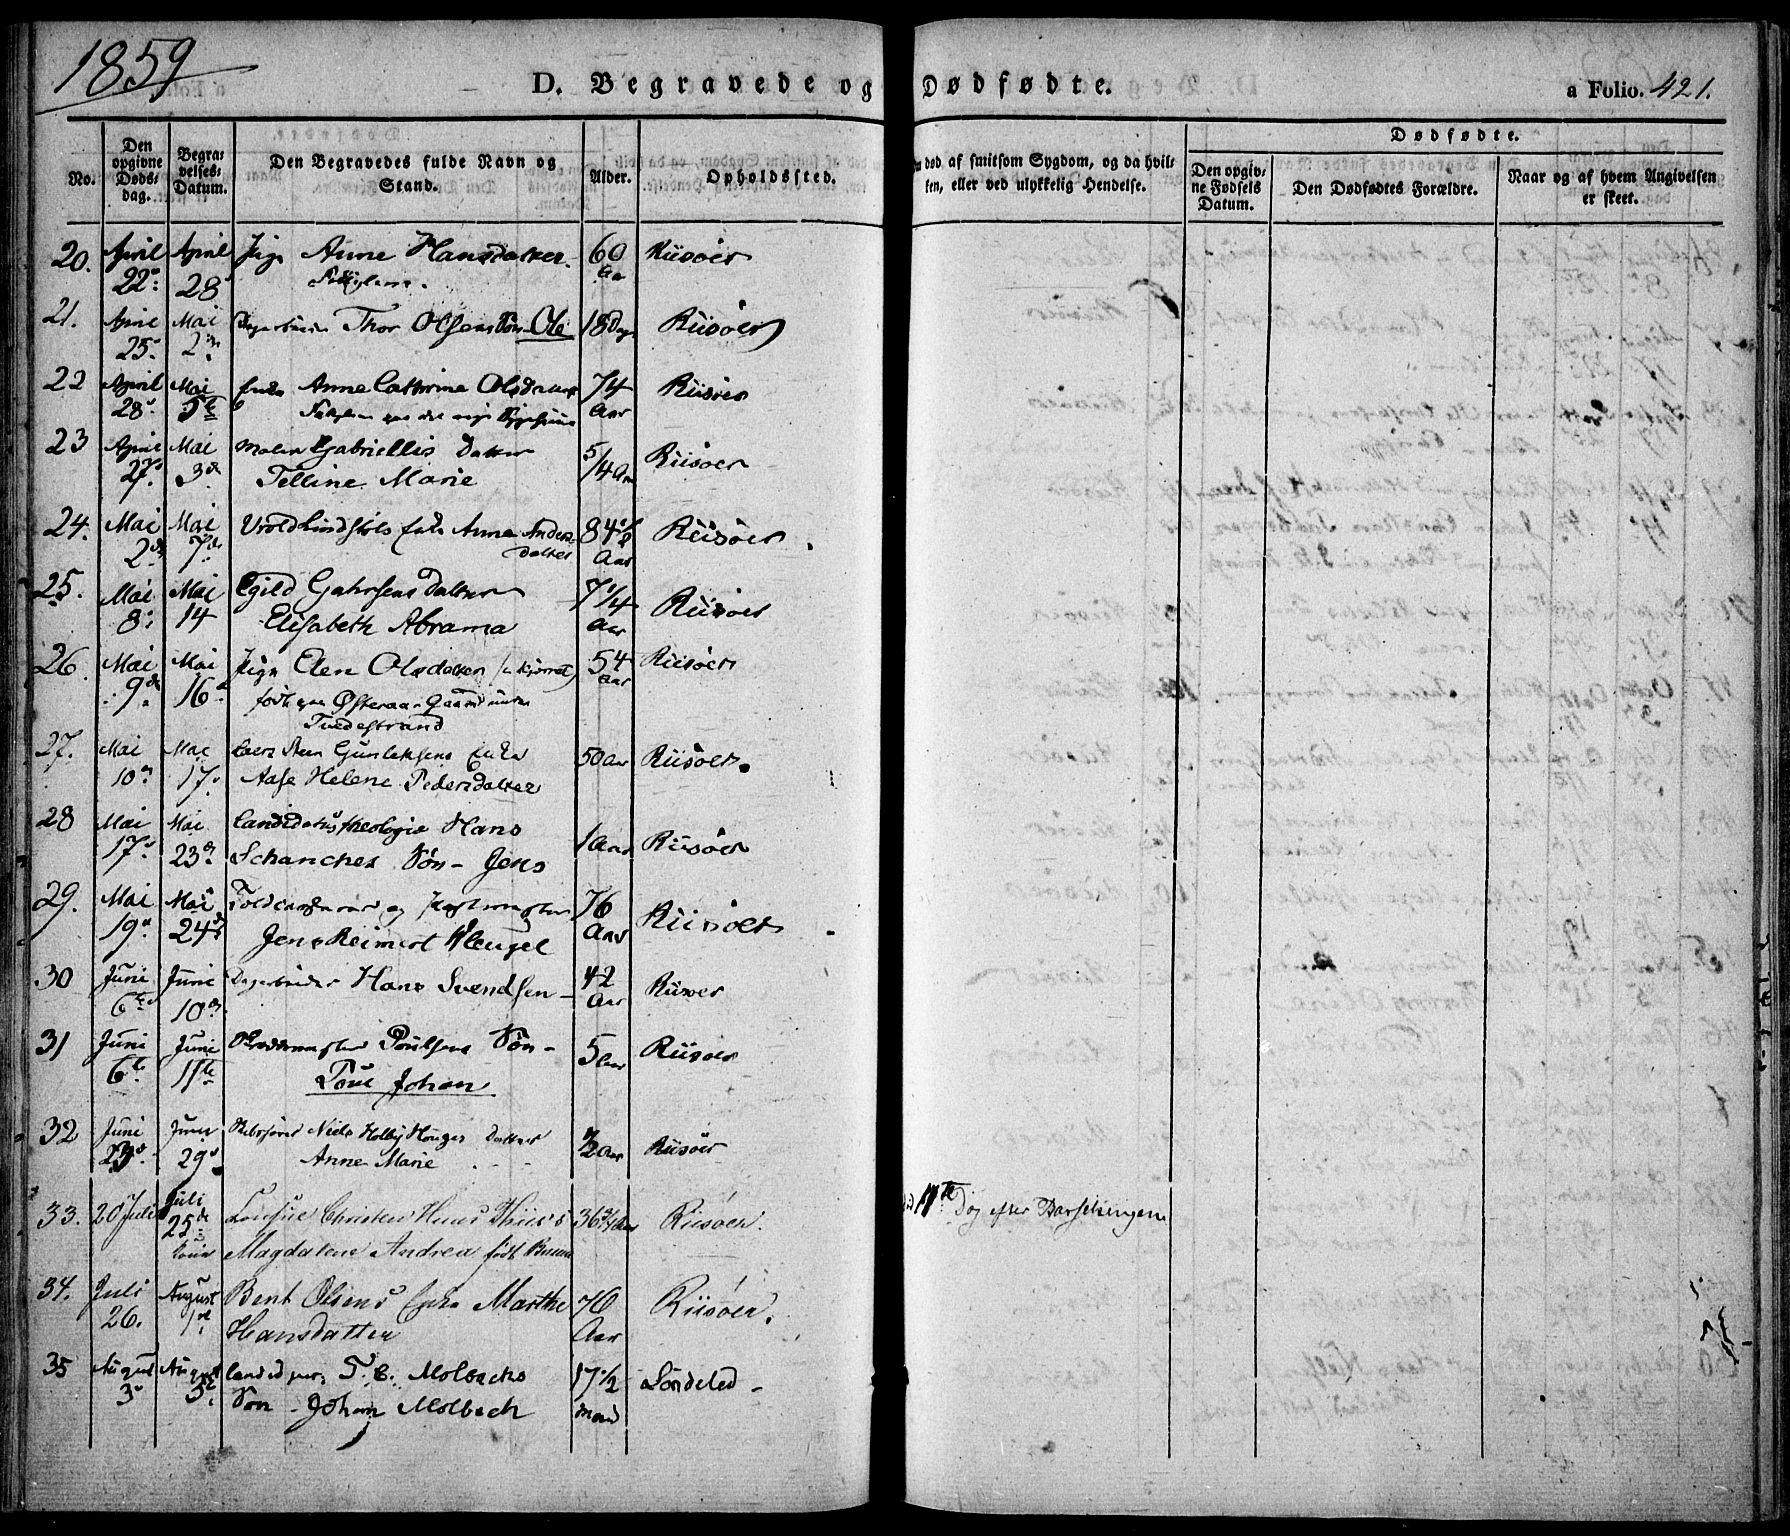 1859
D. Begravede og Dødfødte.
a Folio. 421.
No.
Den opgivne Døds-dag.
Begra-velses-Datum.
Den Begravedes fulde Navn og Stand.
Alder.
Opholdssted.
død af smitsom Sygdom, og da hvil-ken, eller ved ulykkelig Hendelse.
Dødfødte.
Den opgiv-ne Fødsels Datum.
Den Dødfødtes Forældre.
Naar og af hvem Angivelsen er skeet.
20. April 22 April 28 Pige Anne Hansdatter 60 Aar Riisøer
21. April 25 Mai 2 Thor Olsens Søn Ole 18 Dage Riisøer
22 April 28 Mai 5te Enke Anne Cathrine Olsdatter 74 Aar Riisøer
23 April 27 Mai 3de Maler Gabriellis Datter
Telline Marie 5/4 Aar Riisøer
24. Mai 2den Mai 7de Enke Anne Anders-
datter 84 Aar Riisøer
25. Mai 8 Mai 14 Egild Datter
Elisabeth Abrama 7 1/4 Aar Riisøer
26. Mai 9de Mai 16 Pige Elen Olsdatter 54 Aar Riisøer
født paa Østeraa Gaard under
Tvedestrand
27. Mai 10 Mai 17 Enke
Aase Helene Pedersdatter 50 Aar Riisøer.
28 Mai 17 Mai 23 Candidatus theologiæ Hans
Schanches Søn - Jens 1 Aar Riisøer
29. Mai 19 Mai 24 Toldcasserer og Postmester
Jens Reimert Wleugel 76 Aar Riisøer
30 Juni 6te Juni 10 Dagarbeider Hans Svendsen 42 Aar Riisøer
31 Juni 6te Juni 11te Poulsens Søn -
Poul Johan 5 Aar Riisøer
32 Juni 23 Juni 29 Niels Holby Datter
Anne Marie 1/2 Aar Riisøer
33. 20 Juli Juli 25de Christen Thiis
Magdalene Andrea født 36 Aar Riisøer.
11te Dag efter Barselsengen
34. Juli 26. August 1 Bent Olsens Enke Marthe
Hansdatter 76 Aar Riisøer.
35 August 3 August 5 T. C. Molbachs
Søn - Johan Molbech 17 1/2 Søndeled -